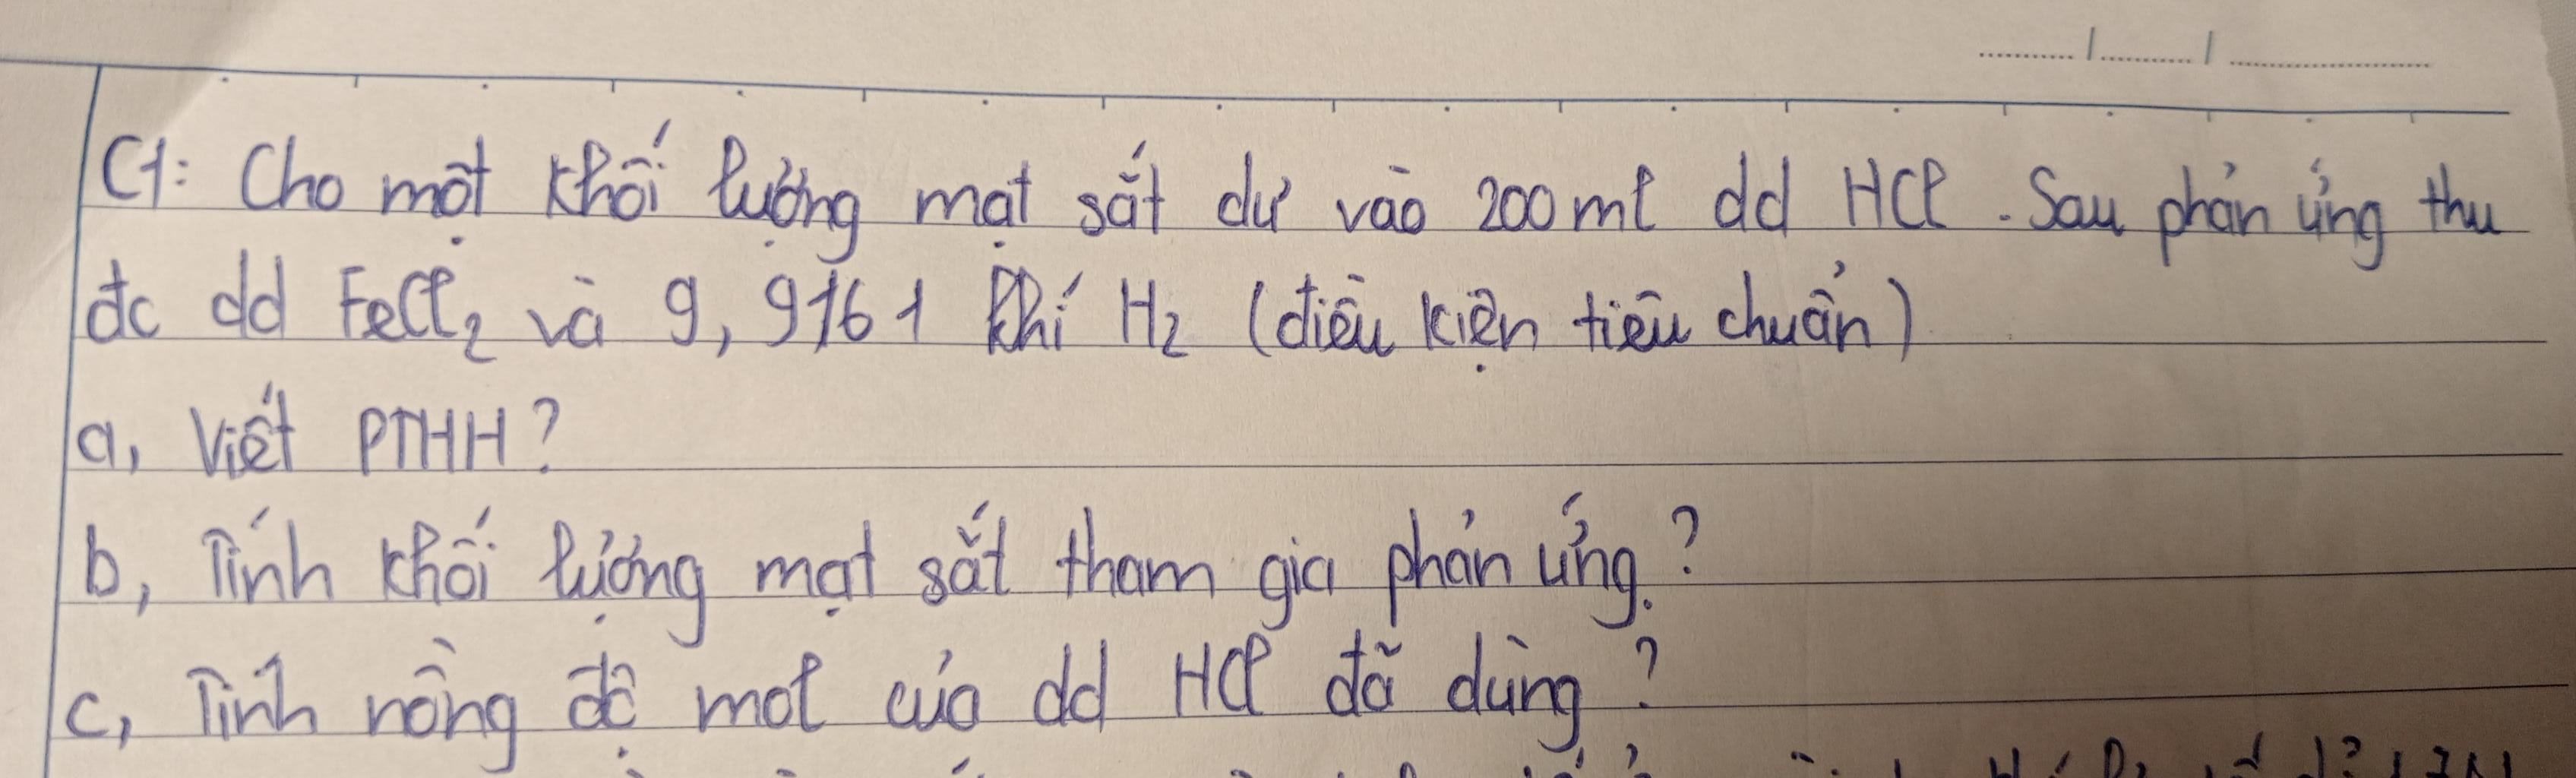 C1: Cho một khối lượng mạt sắt dư vào 200ml dd HCl. Sau phản ứng thu
đc dd FeCl₂ và 9,916 l khí H₂ (điều kiện tiêu chuẩn)
a, Viết PTHH?
b, Tính khối lượng mạt sắt tham gia phản ứng.?
c, Tính nồng độ mol của dd HCl đã dùng?